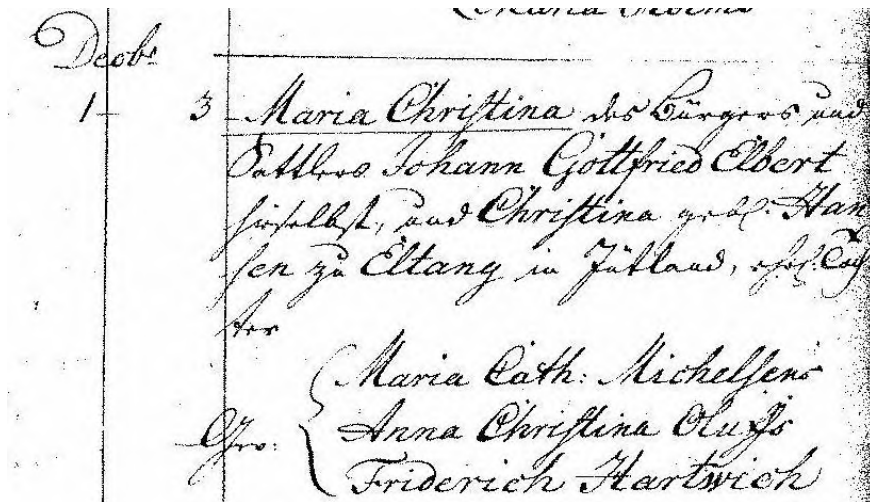 Decbr
1 3 Maria Christina des Bürgers und
Sattlers Johann Gottfried Elbert
hieselbst, und Christina geb. Han
sen zu Eltang in Jütland, ehel. Toch
ter
Maria Cath: Michelsens
Gev: Anna Christina Olufs
Friderich Hartwich